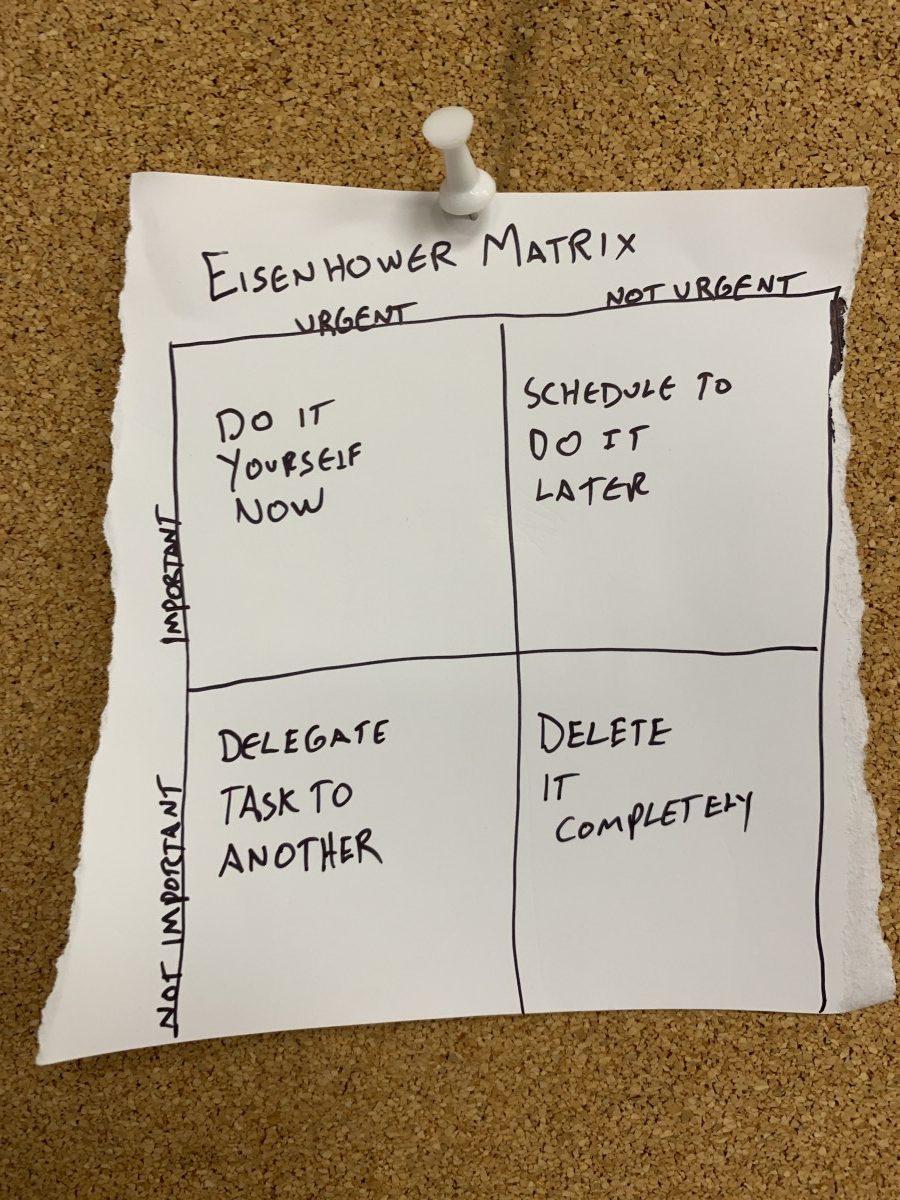 EISENHOWER MATRIX
URGENT
NOT URGENT
IMPORTANT
DO IT
YOURSELF
NOW
SCHEDULE TO
DO IT
LATER
NOT IMPORTANT
DELEGATE
TASK TO
ANOTHER
DELETE
IT
COMPLETELY